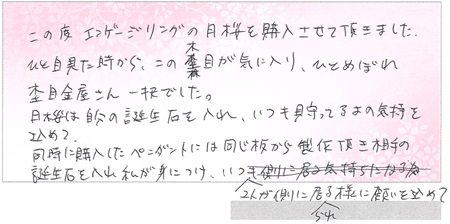 この度 エンゲージリングの月桜を購入させて頂きました.
ひと目見た時から、この杢目が気に入り、ひとめぼれ
木
杢目金屋さん一択でした。
月桜は自分の誕生石を入れ、いつも見守ってるよの気持を
込めて.
同時に購入したペンダントには同じ板から製作頂き相手の
誕生石を入れ私が身につけ、いつも側に居る気持ちになる為
2人が側に居る様に願いを込めて
られ